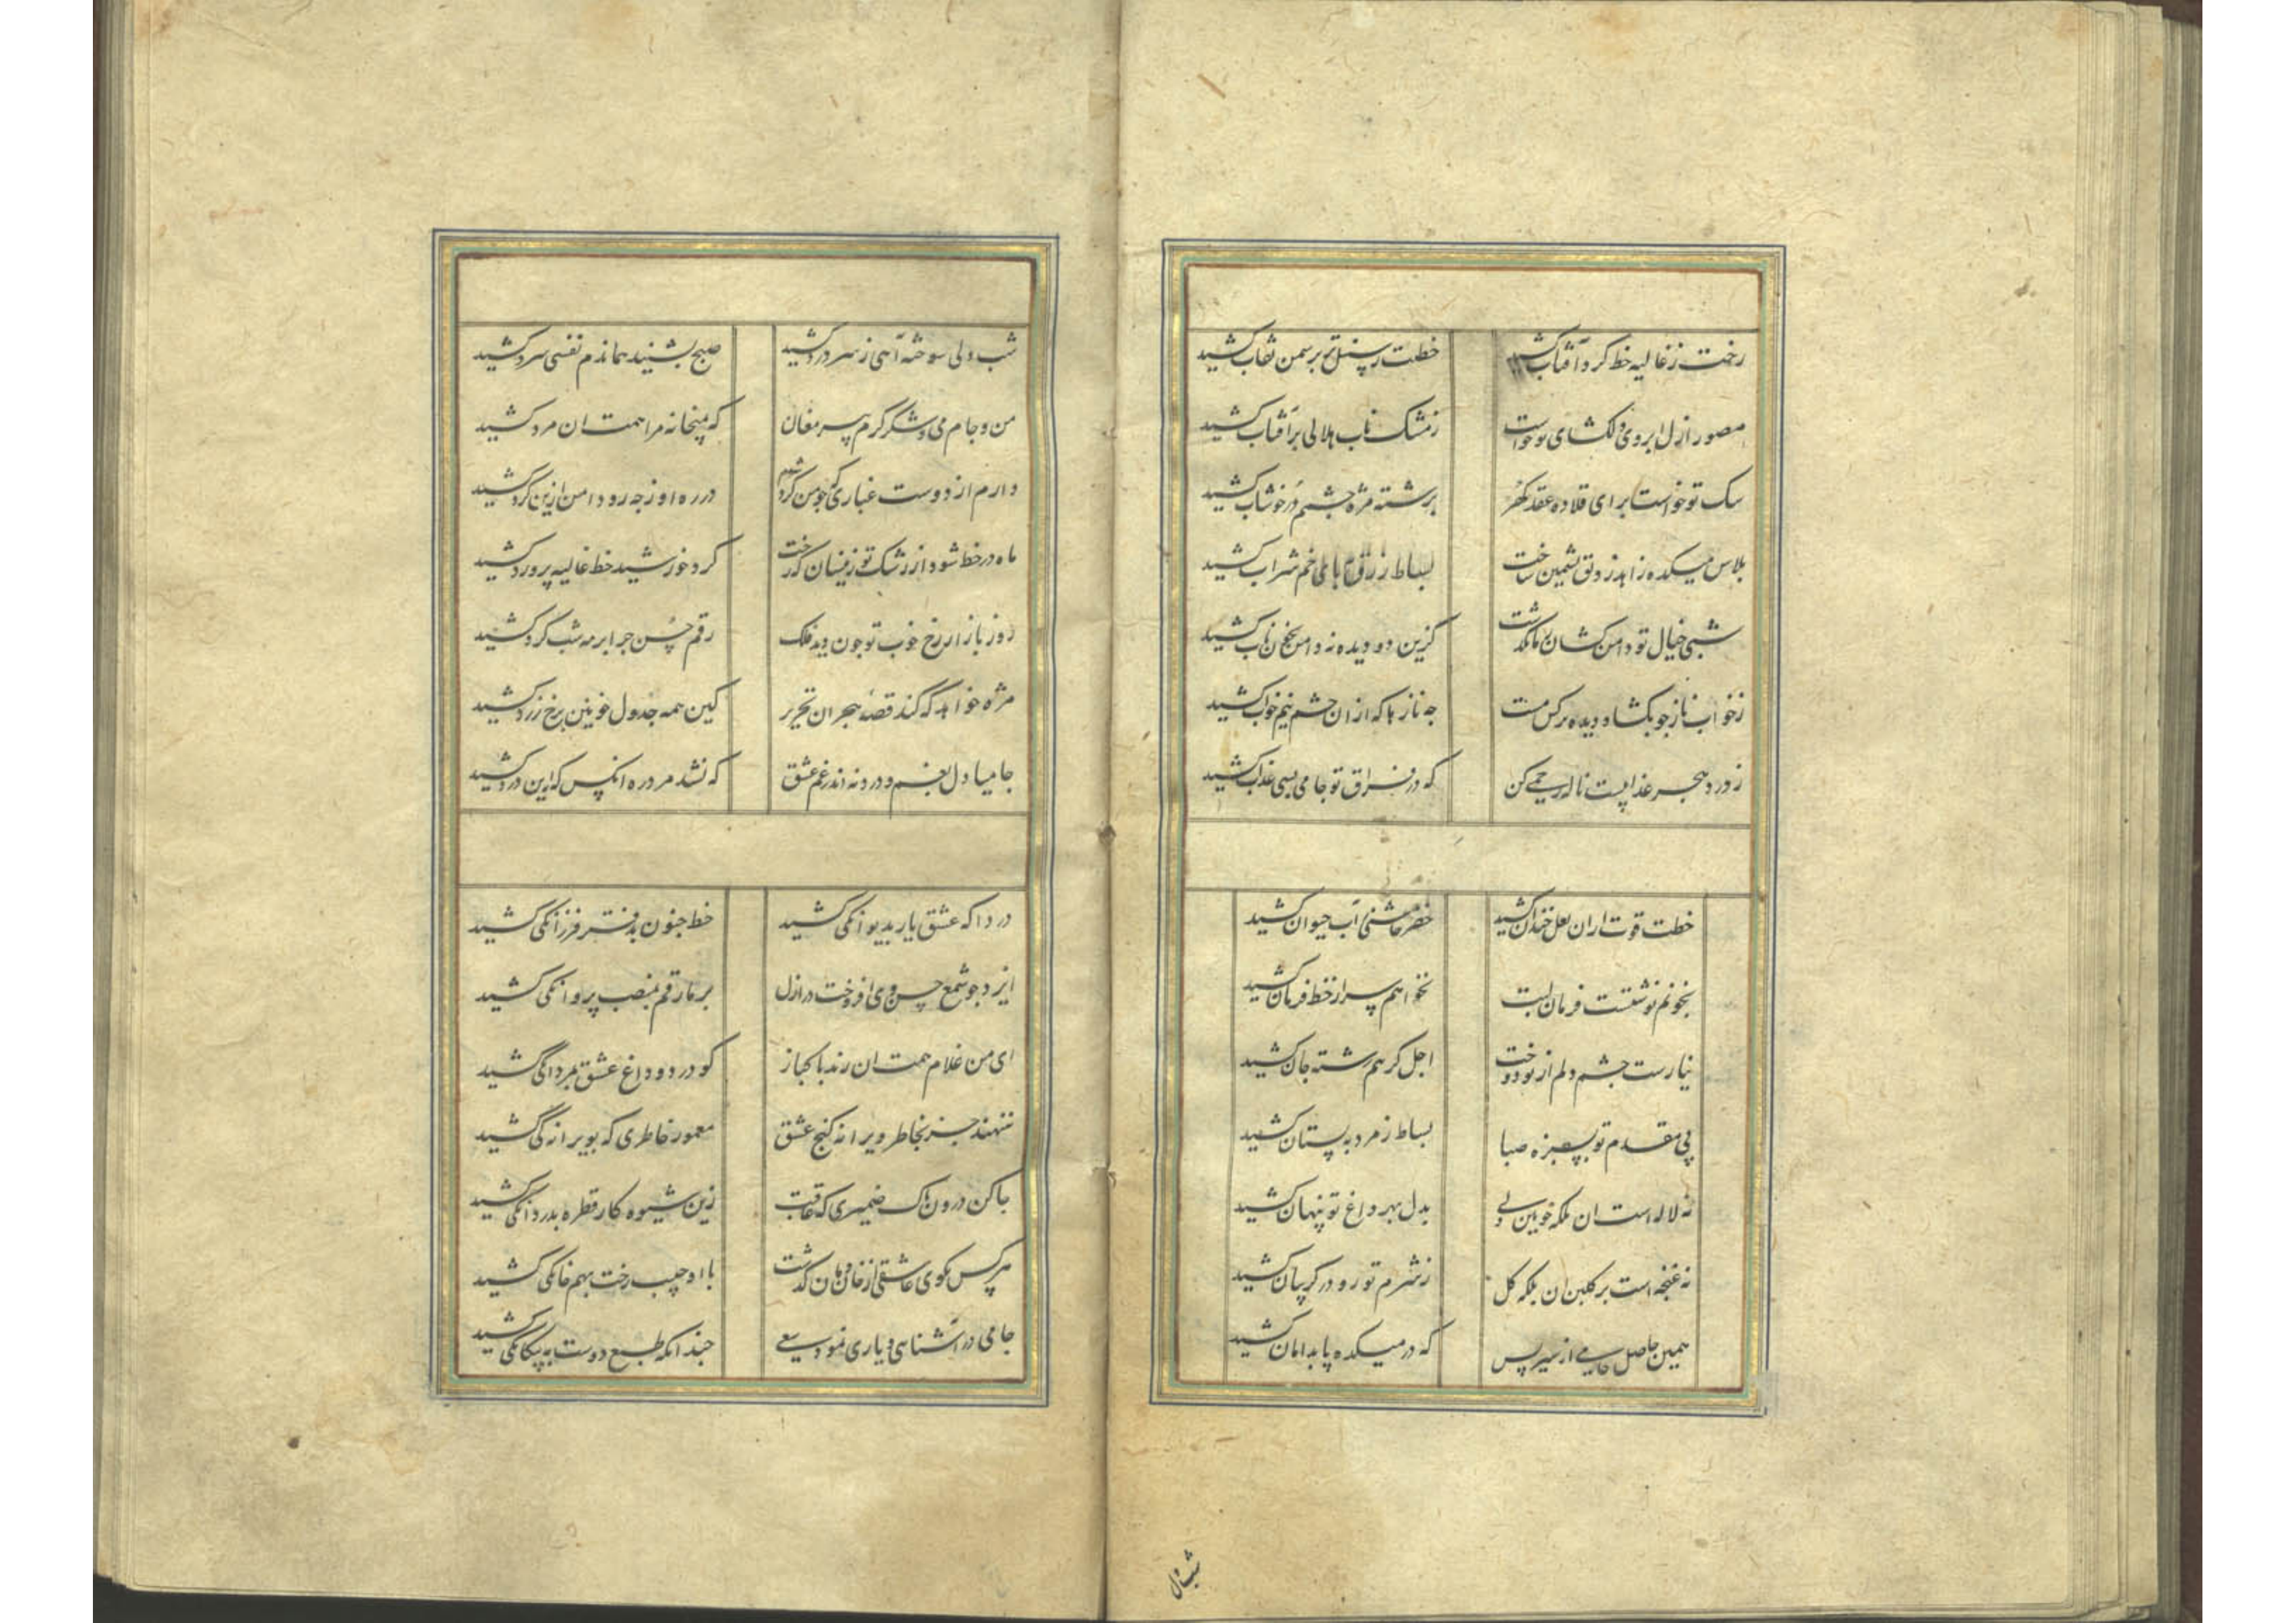 رخت ز غالیه خط گرد آفتاب کشید
خطت ز سنبل تر بر سمن نقاب کشید
مصور ازل ابروی دلکشای تو خواست
ز مشک ناب هلالی بر آفتاب کشید
سک تو خواست برای قلاده عقد کهر
برشته مژه چشمم در خوشاب کشید
پلاس میکده زاهد ز دلق پشمین ساخت
بساط زرق بپای خم شراب کشید
شبی خیال تو دامن کشان بما بگذشت
کزین دو دیده نه دامن بخون ناب کشید
ز خواب ناز جو بکشاد دیده نرکس مست
جه نازها که از ان چشم نیم خواب کشید
ز درد هجر عذابیست ناله رحمی کن
که در فراق تو جامی بسی عذاب کشید
خطت قوت از ان لعل خندان کشید
خضر آب حیوان کشید
بخونم نوشتست فرمان لبت
نخواهم سر از خط فرمان کشید
نیارست چشم دلم از تو دوخت
اجل کر هم رشته جان کشید
پی مقدم تو بسبزه صبا
بساط زمرد به بستان کشید
نه لاله است ان بلکه خونین دلی
بدل بهر داغ تو پنهان کشید
نه غنجه است بر کلبن ان بلکه کل
ز شرم تو رو در کریبان کشید
همین حاصل جامی از سیر بس
که در میکده پا بدامان کشید
شب دلی سوخته آهی ز سر درد کشید
صبح بشنید همان دم نفسی سرد کشید
من و جام می و شکر کرم پیر مغان
که بمیخانه مرا همت ان مرد کشید
دارم از دوست غباری که جو من کرد شدم
در ره او ز جه رو دامن ازین کرد کشید
ماه در خط شود از رشک تو زینسان که رخت
کرد خورشید خط غالیه پرورد کشید
روز بازار رخ خوب تو جون دید فلک
رقم حسن جرا بر مه شب کرد کشید
مژه خواهد که کند قصه هجران تحریر
کین همه جدول خونین برخ زرد کشید
جامیا دل بغم و درد نه اندر غم عشق
که نشد مرد ره انکس که نه این درد کشید
دردا که عشق یار بدیوانکی کشید
خط جنون بدفتر فرزانکی کشید
ایزد جو شمع حسن وی افروخت در ازل
بر ما رقم بمنصب پروانکی کشید
ای من غلام همت ان رند پاکباز
کو درد و داغ عشق بمردانکی کشید
ننهند جز بخاطر ویرانه کنج عشق
معمور خاطری که بویرانه کی کشید
جا کن درون پاک ضمیری که عاقبت
زین شیوه کار قطره بدردانکی کشید
هر کس بکوی عاشقی از خان و مان گذشت
با او حبیب رخت بهم خانکی کشید
جامی در آشنایی و یاری نمود سعی
جندانکه طبع دوست به بیکانکی کشید
شب دل